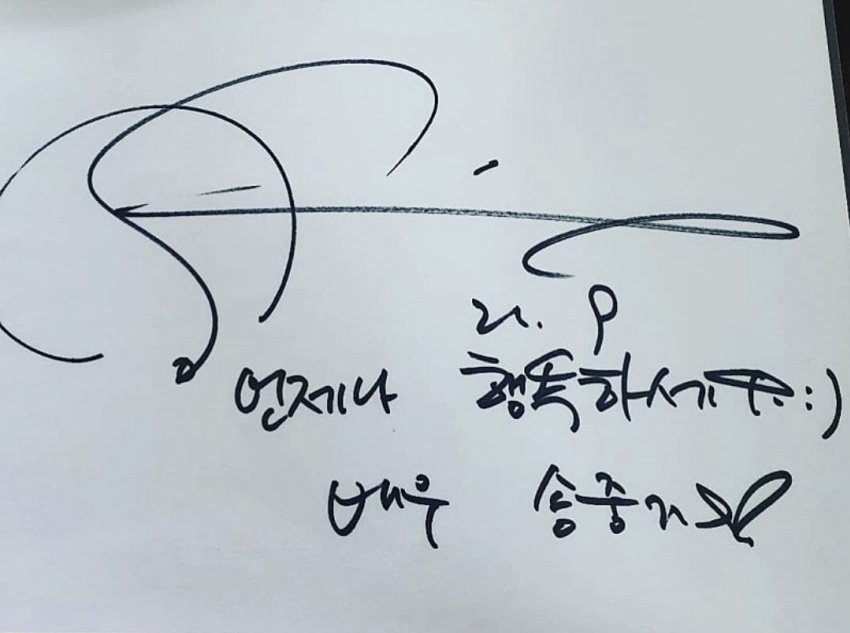 21. 9
언제나 행복하세요 :)
배우 송중기